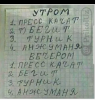 УТРОМ
1. ПРЕСС КАЧАТ
2. БЕГИТ
3. ТУРНИК
4. АНЖУМАНЯ
ВЕЧЕРОМ
1. ПРЕСС КАЧАТ
2. БЕГИТ
3. ТУРНИК
4. АНЖУМАНЯ